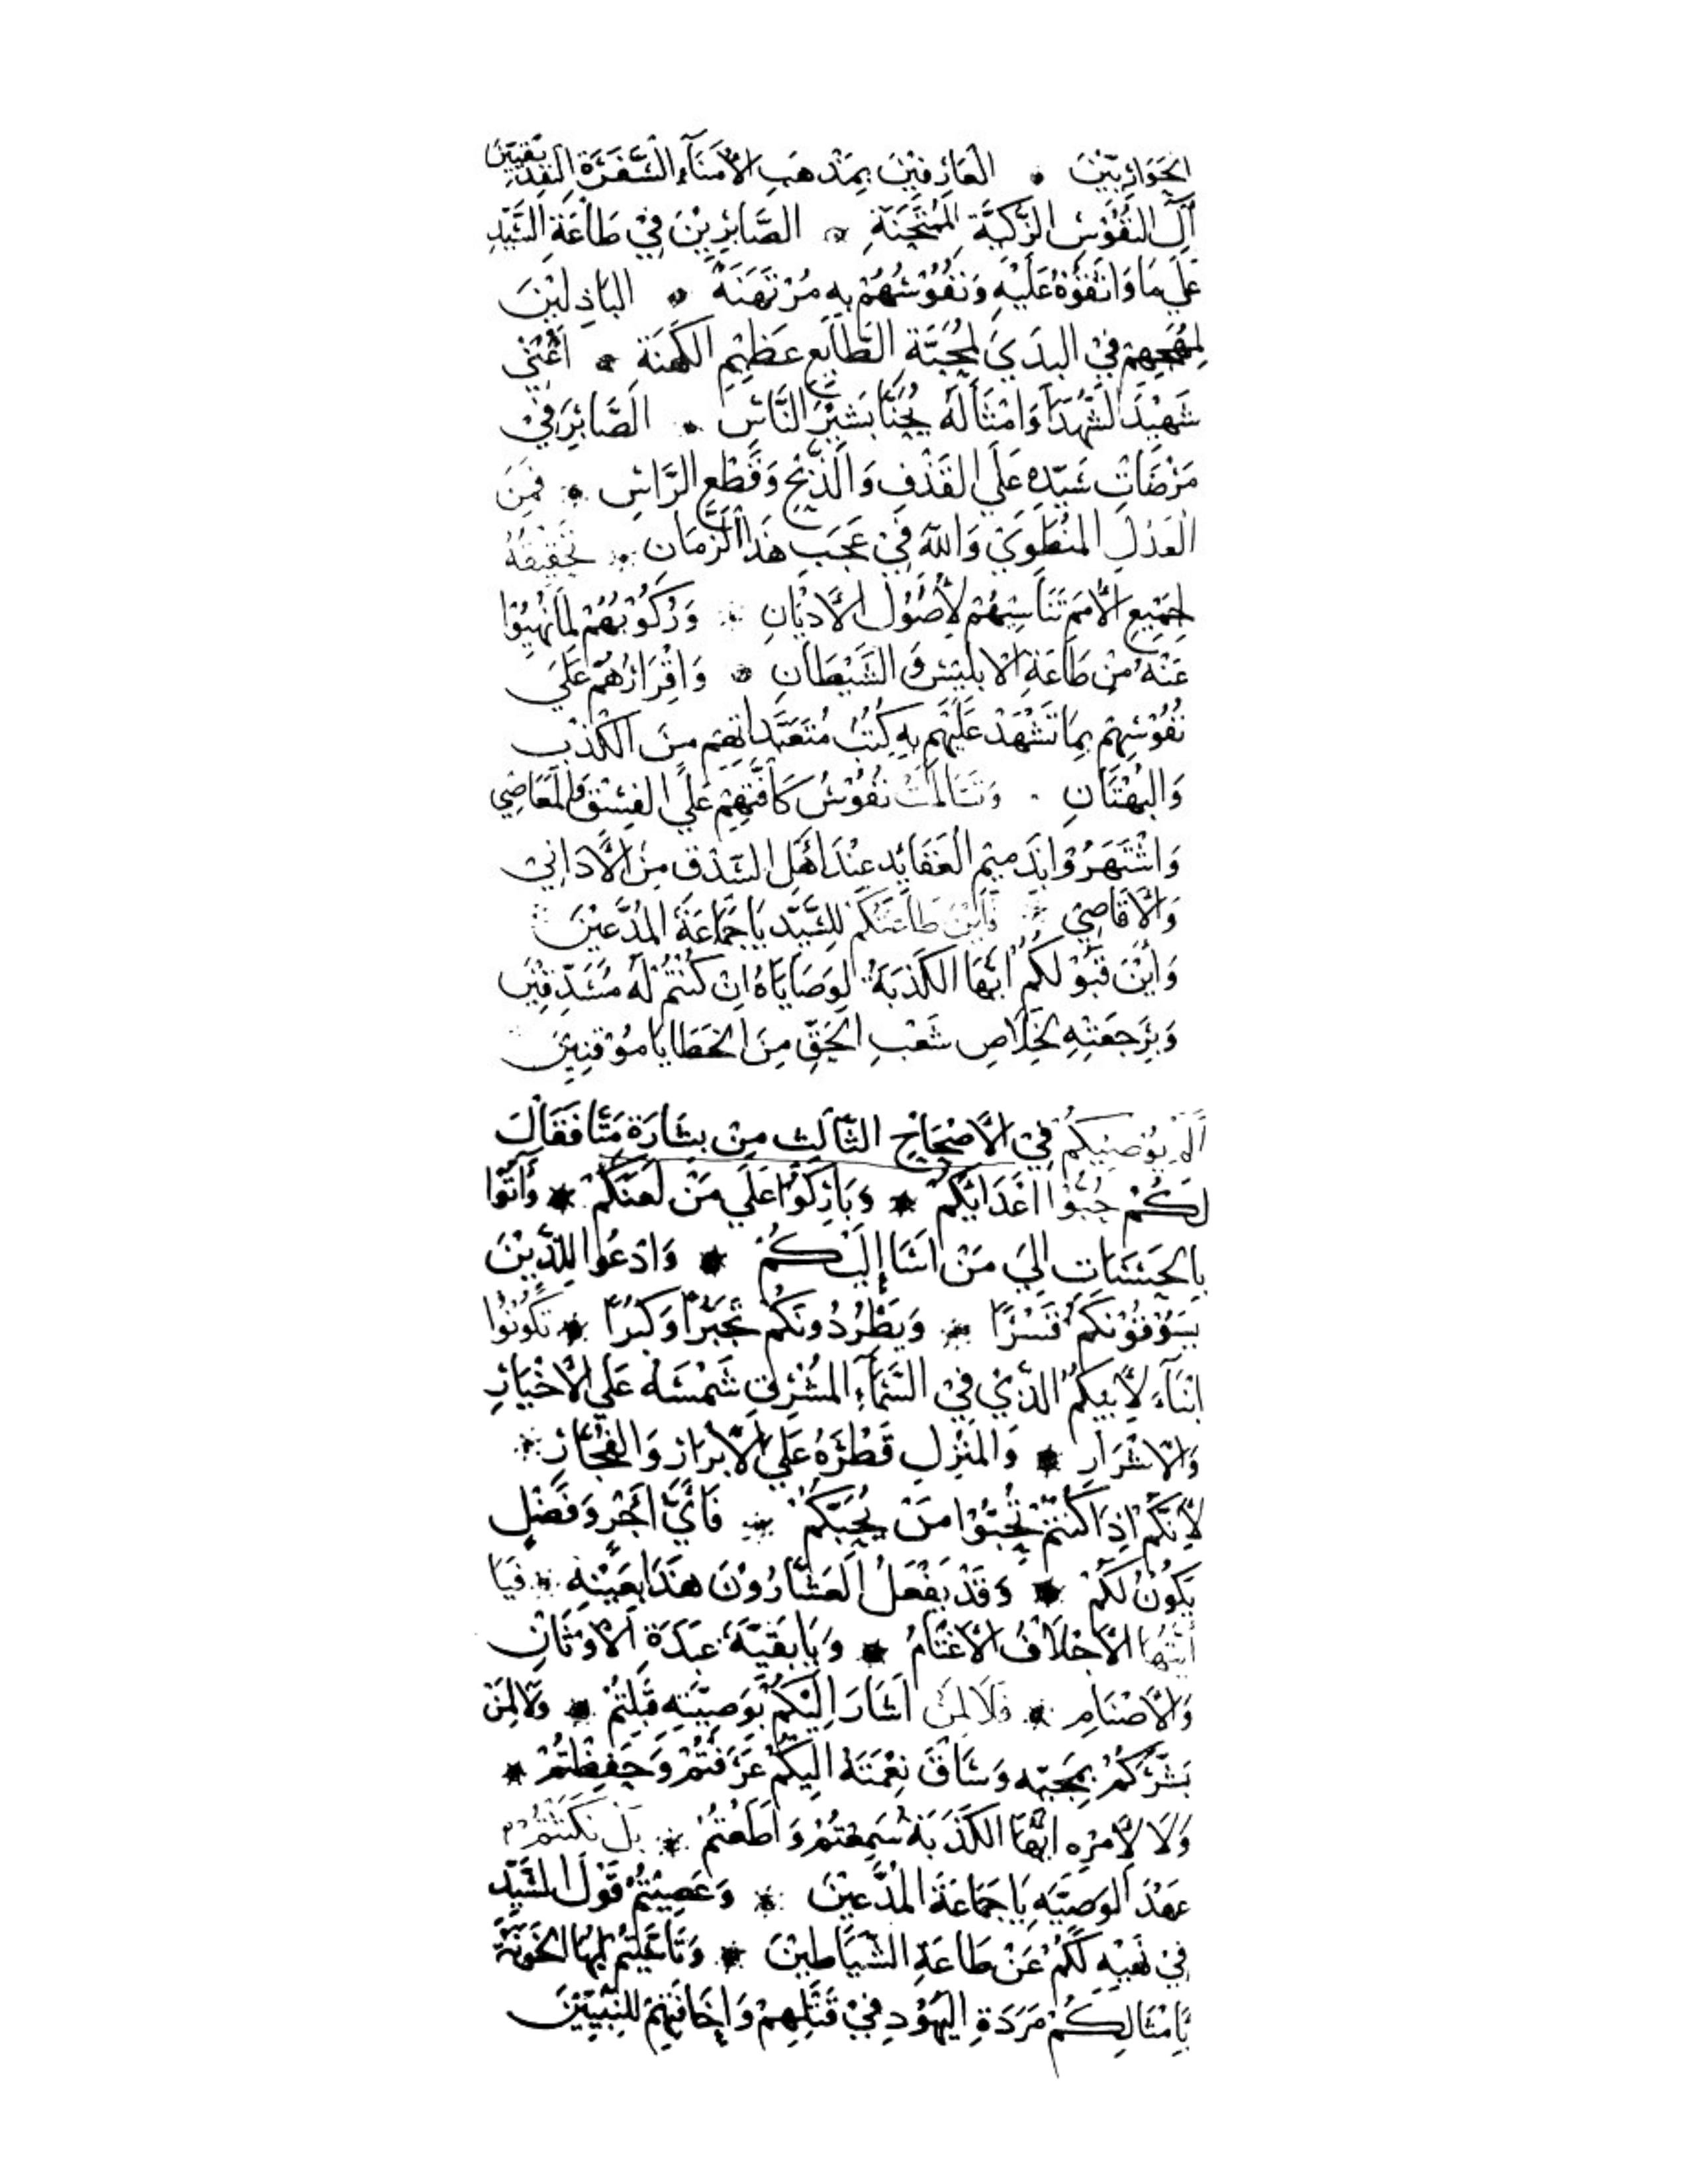 الحَوَارِيّيْنَ * العَارِفِيْنَ بِمَذْهَبِ الأُمَنَآءِ السَّفَرَةِ
آلِ النُفُوْسِ الزَّكيَّةِ المُمْتَحَنَةِ * الصَّابِرِيْنَ فِيْ طَاعَةِ السَّيّدِ
عَلَي مَا وَاثَقُوْهُ عَلَيْهِ وَنُفُوْسُهُمْ بِهِ مُرْتَهَنَةْ * البَاذِلِيْنَ
لِمُهَجِهِمْ فِيْ البِدَيْ لِمُحَبَّةِ الطَّايِعِ عَظِيْمِ الكَهَنَةِ * أَعْنِيْ
شَهِيْدَ الشُهَدَآ وَامْثَالَهُ يُحَنَّا بَشِيْرَ النَّاسِ * الصَّابِرَ فِيْ
مَرْضَاتْ سَيّدِهِ عَلَي القَذْفِ وَالذَّبْحِ وَقَطْعِ الرَّاسِ * فَمِنَ
العَدْلِ المُنْطَوِيْ وَاللهِ فِيْ عَجَبِ هَذَا الزَّمَانِ *
لِجَمِيْعِ الأُمَمِ تَنَاسِيْهُمْ لأُصُوْلِ الأَدْيَانِ * وَرُكُوْبُهُمْ لِمَا نُهِيُوْا
عَنْهُ مِنْ طَاعَةِ الابلِيْسِ وَالشَّيْطَانِ * وَاقْرَارُهُمْ عَلَي
نُفُوْسِهِمْ بِمَا تَشْهَدْ عَلَيْهِم بِهِ كُتُبُ مُتَعَبَّدَاتِهِم مِنَ الكَذْبِ
وَالبُهْتَانِ * وَتَسَالَمَتْ نُفُوْسُ كَافَّتِهِمْ عَلَي الفِسْقِ وَالمَعَاصِي
وَاشْتَهَرُوْا بِذَمِيْمِ العَقَايْدِ عِنْدَ أَهْلِ السّدْقِ مِنَ الأَدَانِيْ
وَالأَقَاصِيْ * فَأَيْنَ طَاعَتكُمْ لِلسَّيّدِ يَا جَمَاعَةَ المُدَّعِيْنَ
وَأَيْنَ قَبُوْلكُمْ أَيُّهَا الكَذَبَةُ لِوَصَايَاهُ انْ كُنْتُمْ لَهُ مُسَدّقِيْنَ
وَبِرَجعَتِهِ لِخَلاَصِ شَعْبِ الحَقِّ مِنَ الخَطَايَا مُوْقِنِيْنَ
أَلَمْ يُوْصِيْكُمْ فِيْ الأَصْحَاحِ الثَّالِث مِنْ بِشَارَةِ مَتَّا فَقَالَ
لَكُمْ حُبُّوْا اعْدَايكُمْ * وَبَارِكُوْا عَلَي مَنْ لَعَنَكُمْ * وَأَتُوْا
بِالحَسَنَاتِ الَيَ مَنْ اسَا إِلَيْكُمْ * وَادْعُوا لِلَّذِيْنَ
يَسُوْقُوْنَكُمْ قَسْرًا * وَيَطْرُدُونَكُمْ تَجَبُّرًا وَكَبْرًا * تَكُوْنُوْا
ابْنَآءَ لأَبِيْكُمُ الَّذِيْ فِيْ السَّمَآءِ المُشْرِقِ شَمْسَهُ عَلَي الأَخْيَارِ
وَالأَشْرَارِ * وَالمُنْزِلِ قَطْرَهُ عَلَي الأَبْرَارِ وَالفُجَّارِ *
لأَنَّكُمْ اذَا كُنْتُمْ تُحِبُّوْا مَنْ يُحِبُّكُمْ * فَأَيُّ أَجْرٍ وَفَضْلٍ
يَكُوْنُ لَكُمْ * وَقَدْ يَفْعَلُ العَشَّارُوْنَ هَذَا بِعَيْنِهِ * فَيَا
أَيُّهَا الأَجْلاَفُ الأَغْتَامُ * وَيَا بَقِيَّةَ عَبَدَةِ الأَوْثَانِ
وَالأَصْنَامِ * فَلاَ لِمَنْ أَشَارَ الَيْكُمْ بِوَصِيَّتِهِ قَبِلْتُمْ * وَلاَ لِمَنْ
بَشَّرَكُمْ بِمَحَبَّتِهِ وَسَاقَ نِعْمَتَهُ الَيْكُمْ عَرَفْتُمْ وَحَفِظْتُمْ *
وَلاَ لأَمْرِهِ ايُّهَا الكَذَبَةُ سَمِعْتُمْ وَأَطَعْتُمْ * بَلْ نَكَثْتُمْ
عَهْدَ الوَصِيَّهِ يَا جَمَاعَةَ المُدَّعِيْنَ * وَعَصِيْتُمْ قَوْلَ السَّيّدِ
فِيْ نَهْيِهِ لَكُمْ عَنْ طَاعَةِ الشَّيَاطِيْنَ * أَيُّهَا الخَوَنَةُ
بِأَمْثَالِكُمْ مَرَدَةِ اليَهُوْدِ فِيْ قَتْلِهِمْ وَإِخَافَتِهِمْ لِلنَّبِيّيْنَ